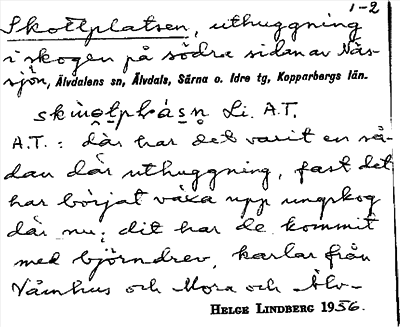 1-2
Skottplatsen, uthuggning
i skogen på södra sidan av Nås-
sjön, Älvdalens sn, Älvdals, Särna o. Idre tg, Kopparbergs län.
Li. A.T.
A.T.: där har det varit en så-
dan där uthuggning, fast det
har börjat växa upp ungskog
där nu; dit har de kommit
med björndrev, karlar från
Våmhus och Mora och Älv-
HELGE LINDBERG 1956.